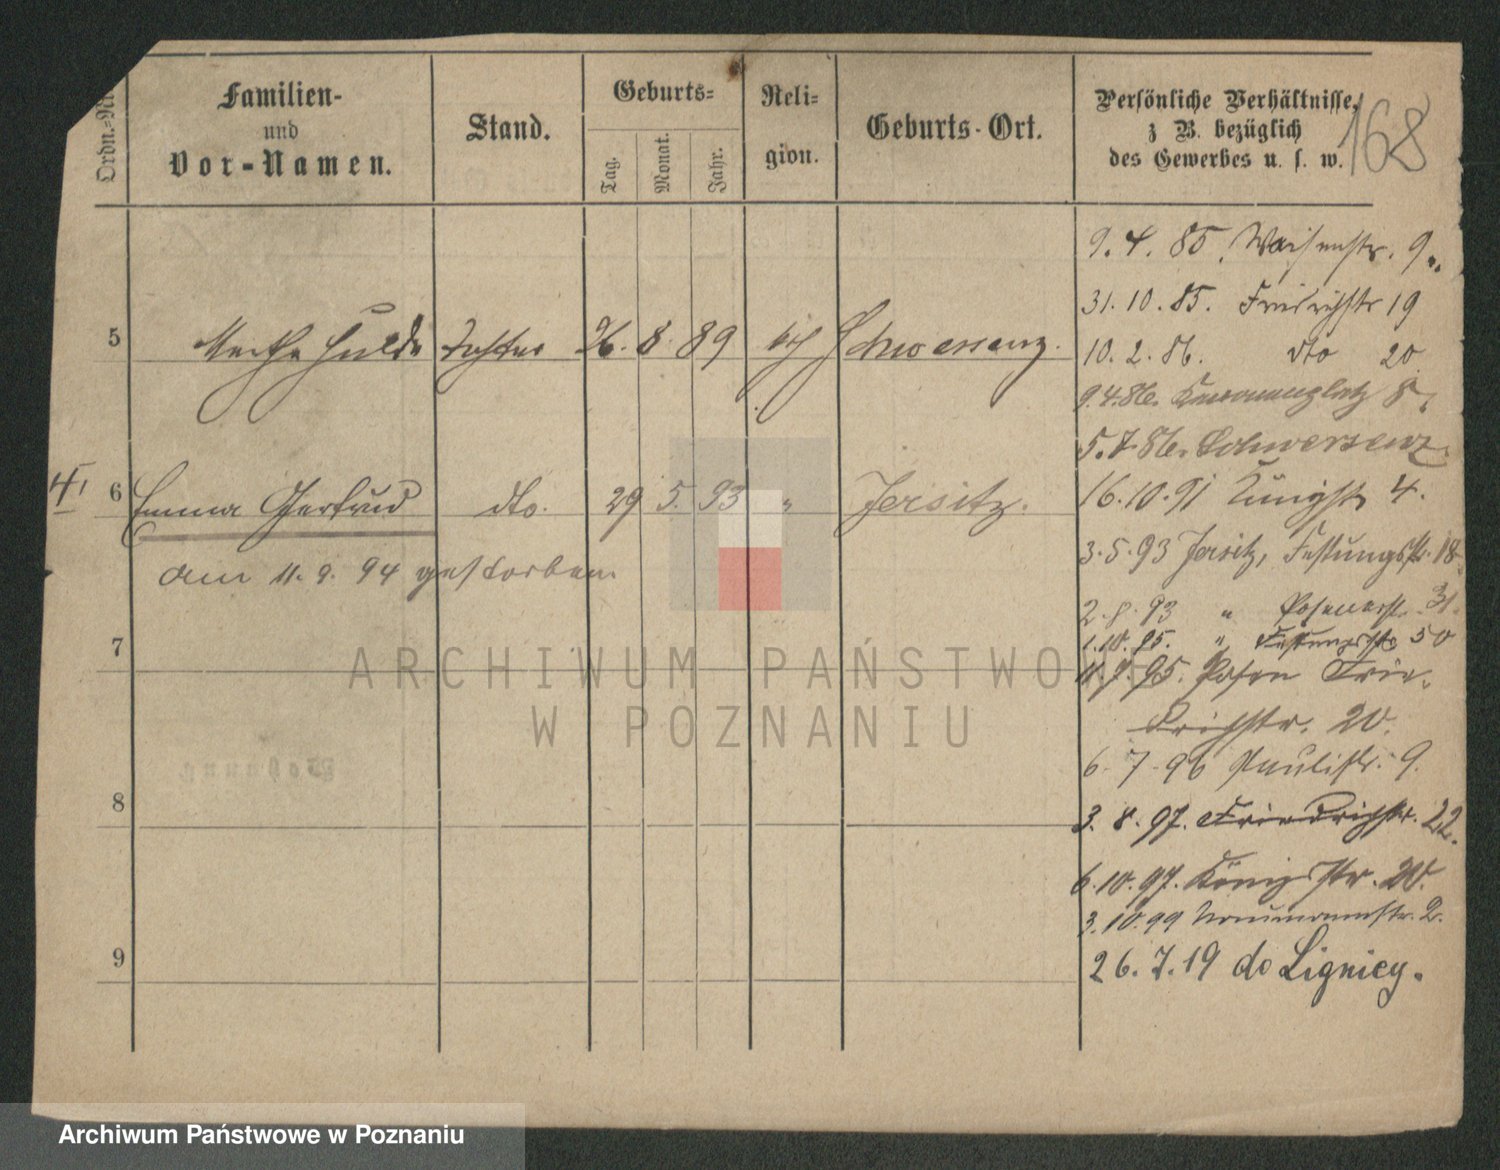 Ordn.-Nr.
Familien-
und
Vor-Namen.
Stand.
Geburts-
Tag.
Monat.
Jahr.
Reli-
gion.
Geburts-Ort.
Persönliche Verhältnisse,
z B. bezüglich
des Gewerbes u. s. w.
168
9. 4. 85. Waisenstr. 9.
31. 10. 85. Friedrichstr 19
5 Martha Hulda Tochter 26. 8. 89 Schwersenz.
10. 2. 86. dto 20
9. 4. 86. Kanonenplatz 8
5. 7. 86. Schwersenz
6 Emma Gertrud dto. 29 5. 93 " Jersitz.
16. 10. 91 4.
3. 5. 93 Jersitz, Festungsstr. 18
am 11. 9. 94 gestorben.
2. 8. 93 " Posenerstr. 31.
1. 10. 95. " Festungsstr 50
7
11. 7. 95. Posen Frie-
drichstr. 20.
6. 7. 96 Paulistr. 9.
8
3. 8. 97. Friedrichstr. 22.
6. 10. 97. Königsstr. 20.
3. 10. 99 Naumannstr. 2.
9
26. 7. 19 do Lignicy.
ARCHIWUM PAŃSTWO
W POZNANIU
Archiwum Państwowe w Poznaniu